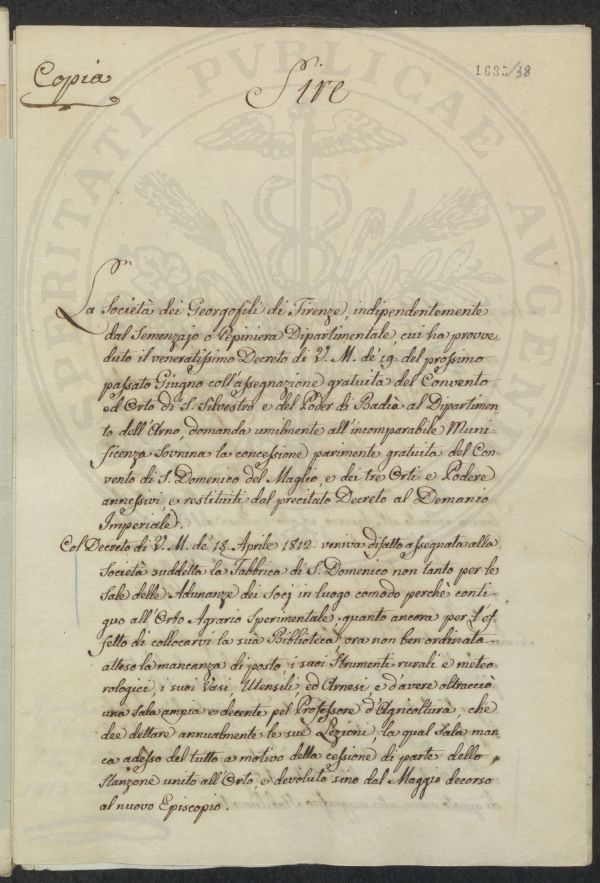 Copia
1685/38
Sire
La Società dei Georgofili di Firenze, indipendentemente
dal Semenzajo o Pepiniera Dipartimentale, cui ha provve-
duto il veneratissimo Decreto di V. M. de' 19. del prossimo
passato Giugno coll'assegnazione gratuita del Convento
ed Orto di S. Silvestro e del Poder di Badia al Dipartimen
to dell'Arno, domanda umilmente all'incomparabile Muni-
ficenza Sovrana la concessione parimente gratuita del Con-
vento di S. Domenico del Maglio, e dei tre Orti e Podere
annessivi, e restituiti dal precitato Decreto al Demanio
Imperiale.
Col Decreto di V. M. de' 15. Aprile 1812 veniva difatto assegnata alla
Società suddetta la Fabbrica di S. Domenico non tanto per le
Sale delle Adunanze dei Socj in luogo comodo perchè conti-
guo all'Orto Agrario Sperimentale, quanto ancora per l'ef-
fetto di collocarvi la sua Biblioteca, ora non ben ordinata
atteso la mancanza di posto, i suoi Strumenti rurali e meteo
rologici, i suoi Vasi, Utensili ed Arnesi, e d'avere oltracciò
una Sala ampia e decente pel Professore d'Agricoltura, che
dee dettare annualmente le sue Lezioni, la qual Sala man
ca adesso del tutto a motivo della cessione di parte dello
Stanzone unito all'Orto, e devoluto sino dal Maggio decorso
al nuovo Episcopio.